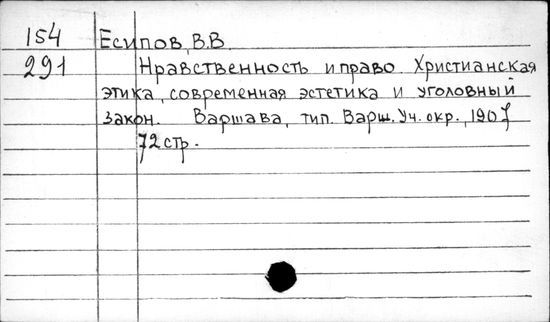 154 Есипов, В.В.
291 Нравственность и право. Христианская
этика, современная эстетика и уголовный
закон. Варшава, тип. Варш. Уч. окр., 1907
72 стр.